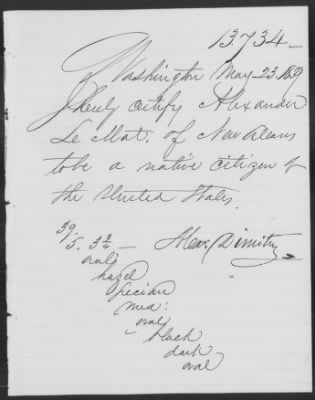 13.734 —
Washington May 23. 1859
I hereby certify Alexander
Le Mat. of New Orleans
to be a native citizen of
the United States.
39.
5. 3¾ — Alex: Dimitry
oval
hazel
grecian
med:
oval
black
dark
oval